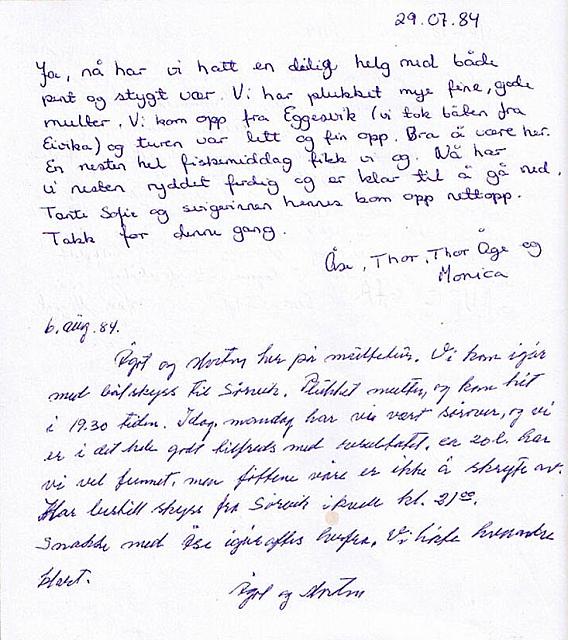 29.07.84
Ja, nå har vi hatt en deilig helg med både
pent og stygt vær. Vi har plukket mye fine, gode
multer. Vi kom opp fra Eggesvik (vi tok båten fra
Eivika) og turen var lett og fin opp. Bra å være her.
En nesten hel fiskemiddag fikk vi og. Nå har
vi nesten ryddet ferdig og er klar til å gå ned.
Tante Sofie og svigerinnen hennes kom opp nettopp.
Takk for denne gang.
Åse, Thor, Thor Åge og
Monica
6. aug. 84.
og her på . Vi kom igår
med båtskyss til Sørvik. Plukket multer, og kom hit
i 19.30 tiden. Idag, mandag har vi vært sørover, og vi
er i det hele godt tilfreds med resultatet, ca 20 l. har
vi vel funnet, men føttene våre er ikke å skryte av.
Har bestilt skyss fra Sørvik ikveld kl. 21 00.
Snakke med Åse igåraftes herfra. Vi hørte hverandre
klart.
og